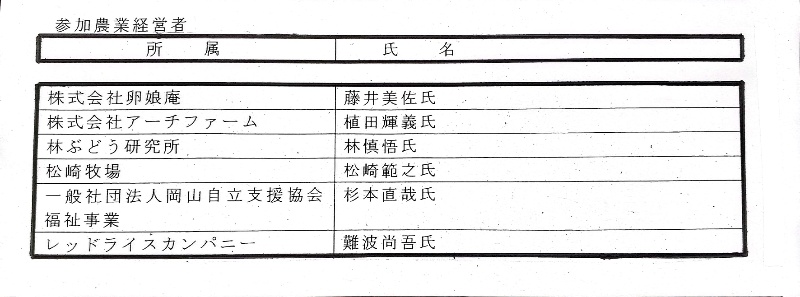 参加農業経営者
所属 氏名
株式会社卵娘庵 藤井美佐氏
株式会社アーチファーム 植田輝義氏
林ぶどう研究所 林慎悟氏
松崎牧場 松崎範之氏
一般社団法人岡山自立支援協会 杉本直哉氏
福祉事業
レッドライスカンパニー 難波尚吾氏